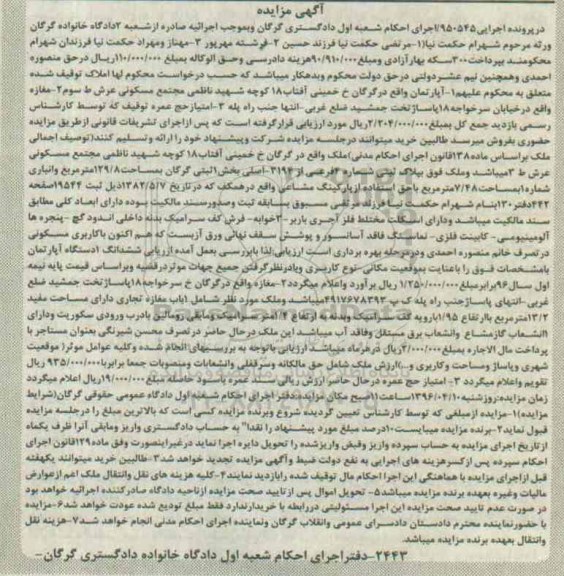 آگهی مزایده
درپرونده اجرایی۹۵۰۵۴۵/اجرای احکام شعبه اول دادگستری گرگان وبموجب اجرائیه صادره ازشعبه ۲دادگاه خانواده گرگان
ورثه مرحوم شهرام حکمت نیا(۱-مرتضی حکمت نیا فرزند حسین ۲-فرشته مهرپور ۳-مهناز ومهراد حکمت نیا فرزندان شهرام
محکومند بپرداخت۳۰۰سکه بهارآزادی ومبلغ۹۰/۹۱۰/۰۰۰هزینه دادرسی وحق الوکاله بمبلغ ۱۱۰/۰۰۰/۰۰۰ریال درحق منصوره
احمدی وهمچنین نیم عشردولتی درحق دولت محکوم وبدهکار میباشد که حسب درخواست محکوم لها املاک توقیف شده
متعلق به محکوم علیهم۱-آپارتمان واقع درگرگان خ خمینی آفتاب۱۸ کوچه شهید ناظمی مجتمع مسکونی عرش ط سوم۲-مغازه
واقع درخیابان سرخواجه۱۸پاساژتخت جمشید ضلع غربی -انتها جنب راه پله ۳-امتیازحج عمره توقیف که توسط کارشناس
رسمی بازدید جمع کل بمبلغ۲/۳۰۴/۰۰۰/۰۰۰ریال مورد ارزیابی قرارگرفته است که پس ازاجرای تشریفات قانونی ازطریق مزایده
حضوری بفروش میرسد طالبین خرید میتوانند درجلسه مزایده شرکت وپیشنهاد خود را ارائه وتسلیم کنند(توصیف اجمالی
ملک براساس ماده۱۳۸قانون اجرای احکام مدنی)ملک واقع در گرگان خ خمینی آفتاب۱۸ کوچه شهید ناظمی مجتمع مسکونی
عرش ط ۳میباشد وملک فوق بپلاک ثبتی شماره فرعی از ۳۱۹۴-اصلی بخش۱ثبتی گرگان بمساحت۱۲۹/۸مترمربع وانباری
شماره بمساحت۷/۴۸مترمربع باحق استفاده ازپارکینگ مشاعی واقع درهمکف که درتاریخ ۱۳۸۲/۵/۷ذیل ثبت ۱۹۵۴۴صفحه
۴۴۲دفتر۱۳۰بنام شهرام حکمت نیا فرزند مرتضی مسبوق به سابقه ثبت وصدورسند مالکیت بوده دارای ابعاد کلی مطابق
سند مالکیت میباشد ودارای اسکلت مختلط فلز آجری باربر-۳خوابه- فرش کف سرامیک بدنه داخلی اندود گچ -پنجره ها
آلومینیومی- کابینت فلزی- نماسنگ فاقد آسانسور و پوشش سقف نهائی ورق آزبست که هم اکنون باکاربری مسکونی
درتصرف خانم منصوره احمدی ودرمرحله بهره برداری است ارزیابی لذا بابررسی بعمل آمده ارزیابی ششدانگ ۱دستگاه آپارتمان
بامشخصات فوق را باعنایت بموقعیت مکانی-نوع کاربری وبادرنظرگرفتن جمیع جهات موثر درقضیه وبراساس قیمت پایه نیمه
اول سال۹۶برابرمبلغ ۱/۲۵۰/۰۰۰/۰۰۰ریال برآورد واعلام میگردد۲-مغازه واقع درگرگان خ سرخواجه۱۸پاساژتخت جمشید ضلع
غربی-انتهای پاساژجنب راه پله ک پ ۴۹۱۷۶۷۸۳۹۳میباشد وملک مورد نظر شامل ۱باب مغازه تجاری دارای مساحت مفید
۱۳/۲مترمربع باارتفاع ۱۹۵باروپه کف سرامیک وبدنه به ارتفاع متر سرامیک ومابقی رومالین بادرب ورودی سکوریت ودارای
۱انشعاب گازمشاع وانشعاب برق مستقل وفاقد آب میباشد این ملک درحال حاضر درتصرف محسن شیرنگی بعنوان مستاجر با
پرداخت مال الاجاره بمبلغ۲/۰۰۰/۰۰۰ریال درهرماه میباشد ارزیابی باتوجه به بررسیهای انجام شده وکلیه عوامل موثر( موقعیت
شهری وپاساژ ومساحت وکاربری و..)ارزش ملک شامل حق مالکانه وسرقفلی وانشعابات ومنصوبات جمعا برابربا۹۳۵/۰۰۰/۰۰۰ ریال
تقویم واعلام میگردد ۳- امتیاز حج عمره درحال حاضر ارزش ریالی سند عمره باسود حاصله مبلغ ۱۹/۰۰۰/۰۰۰ریال اعلام میگردد
زمان مزایده:روزشنبه ۱۳۹۶/۰۴/۱۰ساعت۱۱صبح مکان مزایده:دفتر اجرای احکام شعبه اول دادگاه عمومی حقوقی گرگان(شرایط
مزایده)۱-مزایده ازمبلغی که توسط کارشناس تعیین گردیده شروع وبرنده مزایده کسی است که بالاترین مبلغ را درجلسه مزایده
قبول نماید۲-برنده مزایده میبایست۱۰درصد مبلغ مورد پیشنهاد را نقدا" به حساب دادگستری واریز ومابقی آنرا ظرف یکماه
ازتاریخ اجرای مزایده به حساب سپرده واریز وفیش واریزشده را تحویل دایره اجرا نماید درغیراینصورت وفق ماده۱۲۹قانون اجرای
احکام سپرده پس ازکسرهزینه های اجرایی به نفع دولت ضبط وآگهی مزایده تجدید خواهد شد۳-طالبین خرید میتوانند یکهفته
قبل ازاجرای مزایده با هماهنگی این اجرا احکام مال توقیف شده رابازدید نمایند۴-کلیه هزینه های نقل وانتقال ملک اعم ازعوارض
مالیات وغیره بعهده برنده مزایده میباشد۵-تحویل اموال پس ازتایید صحت مزایده ازناحیه دادگاه صادرکننده اجرائیه خواهد بود
در صورت عدم تایید صحت مزایده این اجرا مسئولیتی دررابطه با خریدارندارد فقط مبلغ تودیع شده عودت خواهد شد۶-مزایده
با حضورنماینده محترم دادستان دادسرای عمومی وانقلاب گرگان ونماینده اجرای احکام مدنی انجام خواهد شد۷-هزینه نقل
وانتقال بعهده برنده مزایده میباشد.
۲۴۴۳-دفتراجرای احکام شعبه اول دادگاه خانواده دادگستری گرگان-